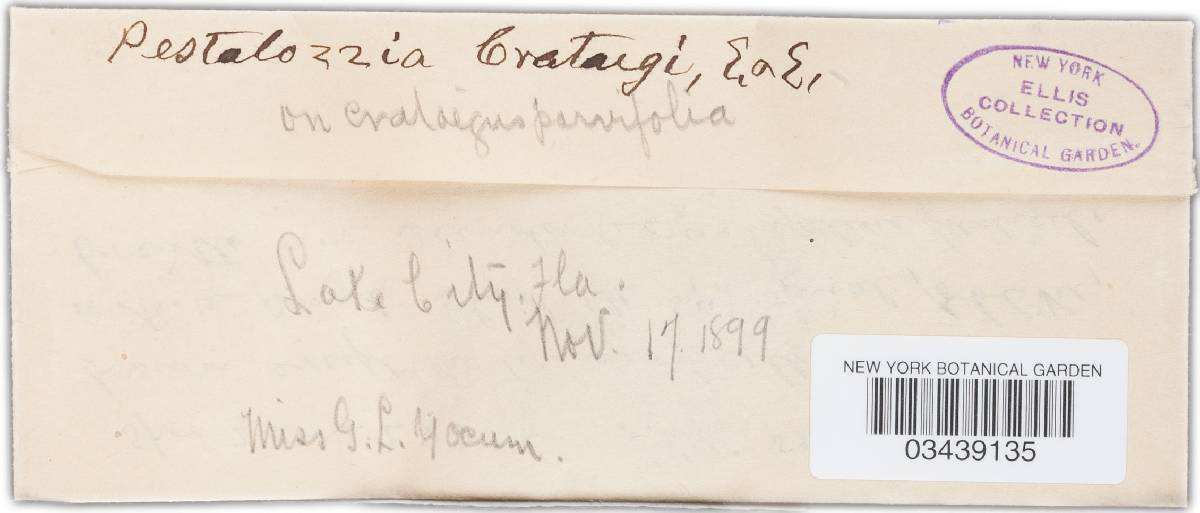 Pestalozzia Crataegi, E. & E.
on crataegus parvifolia
NEW YORK
ELLIS
COLLECTION
BOTANICAL GARDEN.
Lake City. Fla.
Nov. 17. 1899
Miss G. L. Yocum.
NEW YORK BOTANICAL GARDEN
03439135